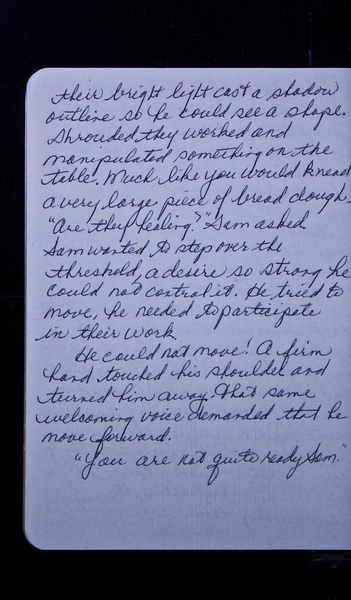 their bright light cast a shadow
outline so he could see a shape.
Shrouded they worked and
manipulated something on the
table. Much like you would knead
a very large piece of bread dough.
"Are they healing?" Sam asked
Sam wanted to step over the
threshold, a desire so strong he
could not control it. He tried to
move, he needed to participate
in their work
He could not move! A firm
hand touched his shoulder and
turned him away. That same
welcoming voice demanded that he
move forward.
"You are not quite ready Sam."